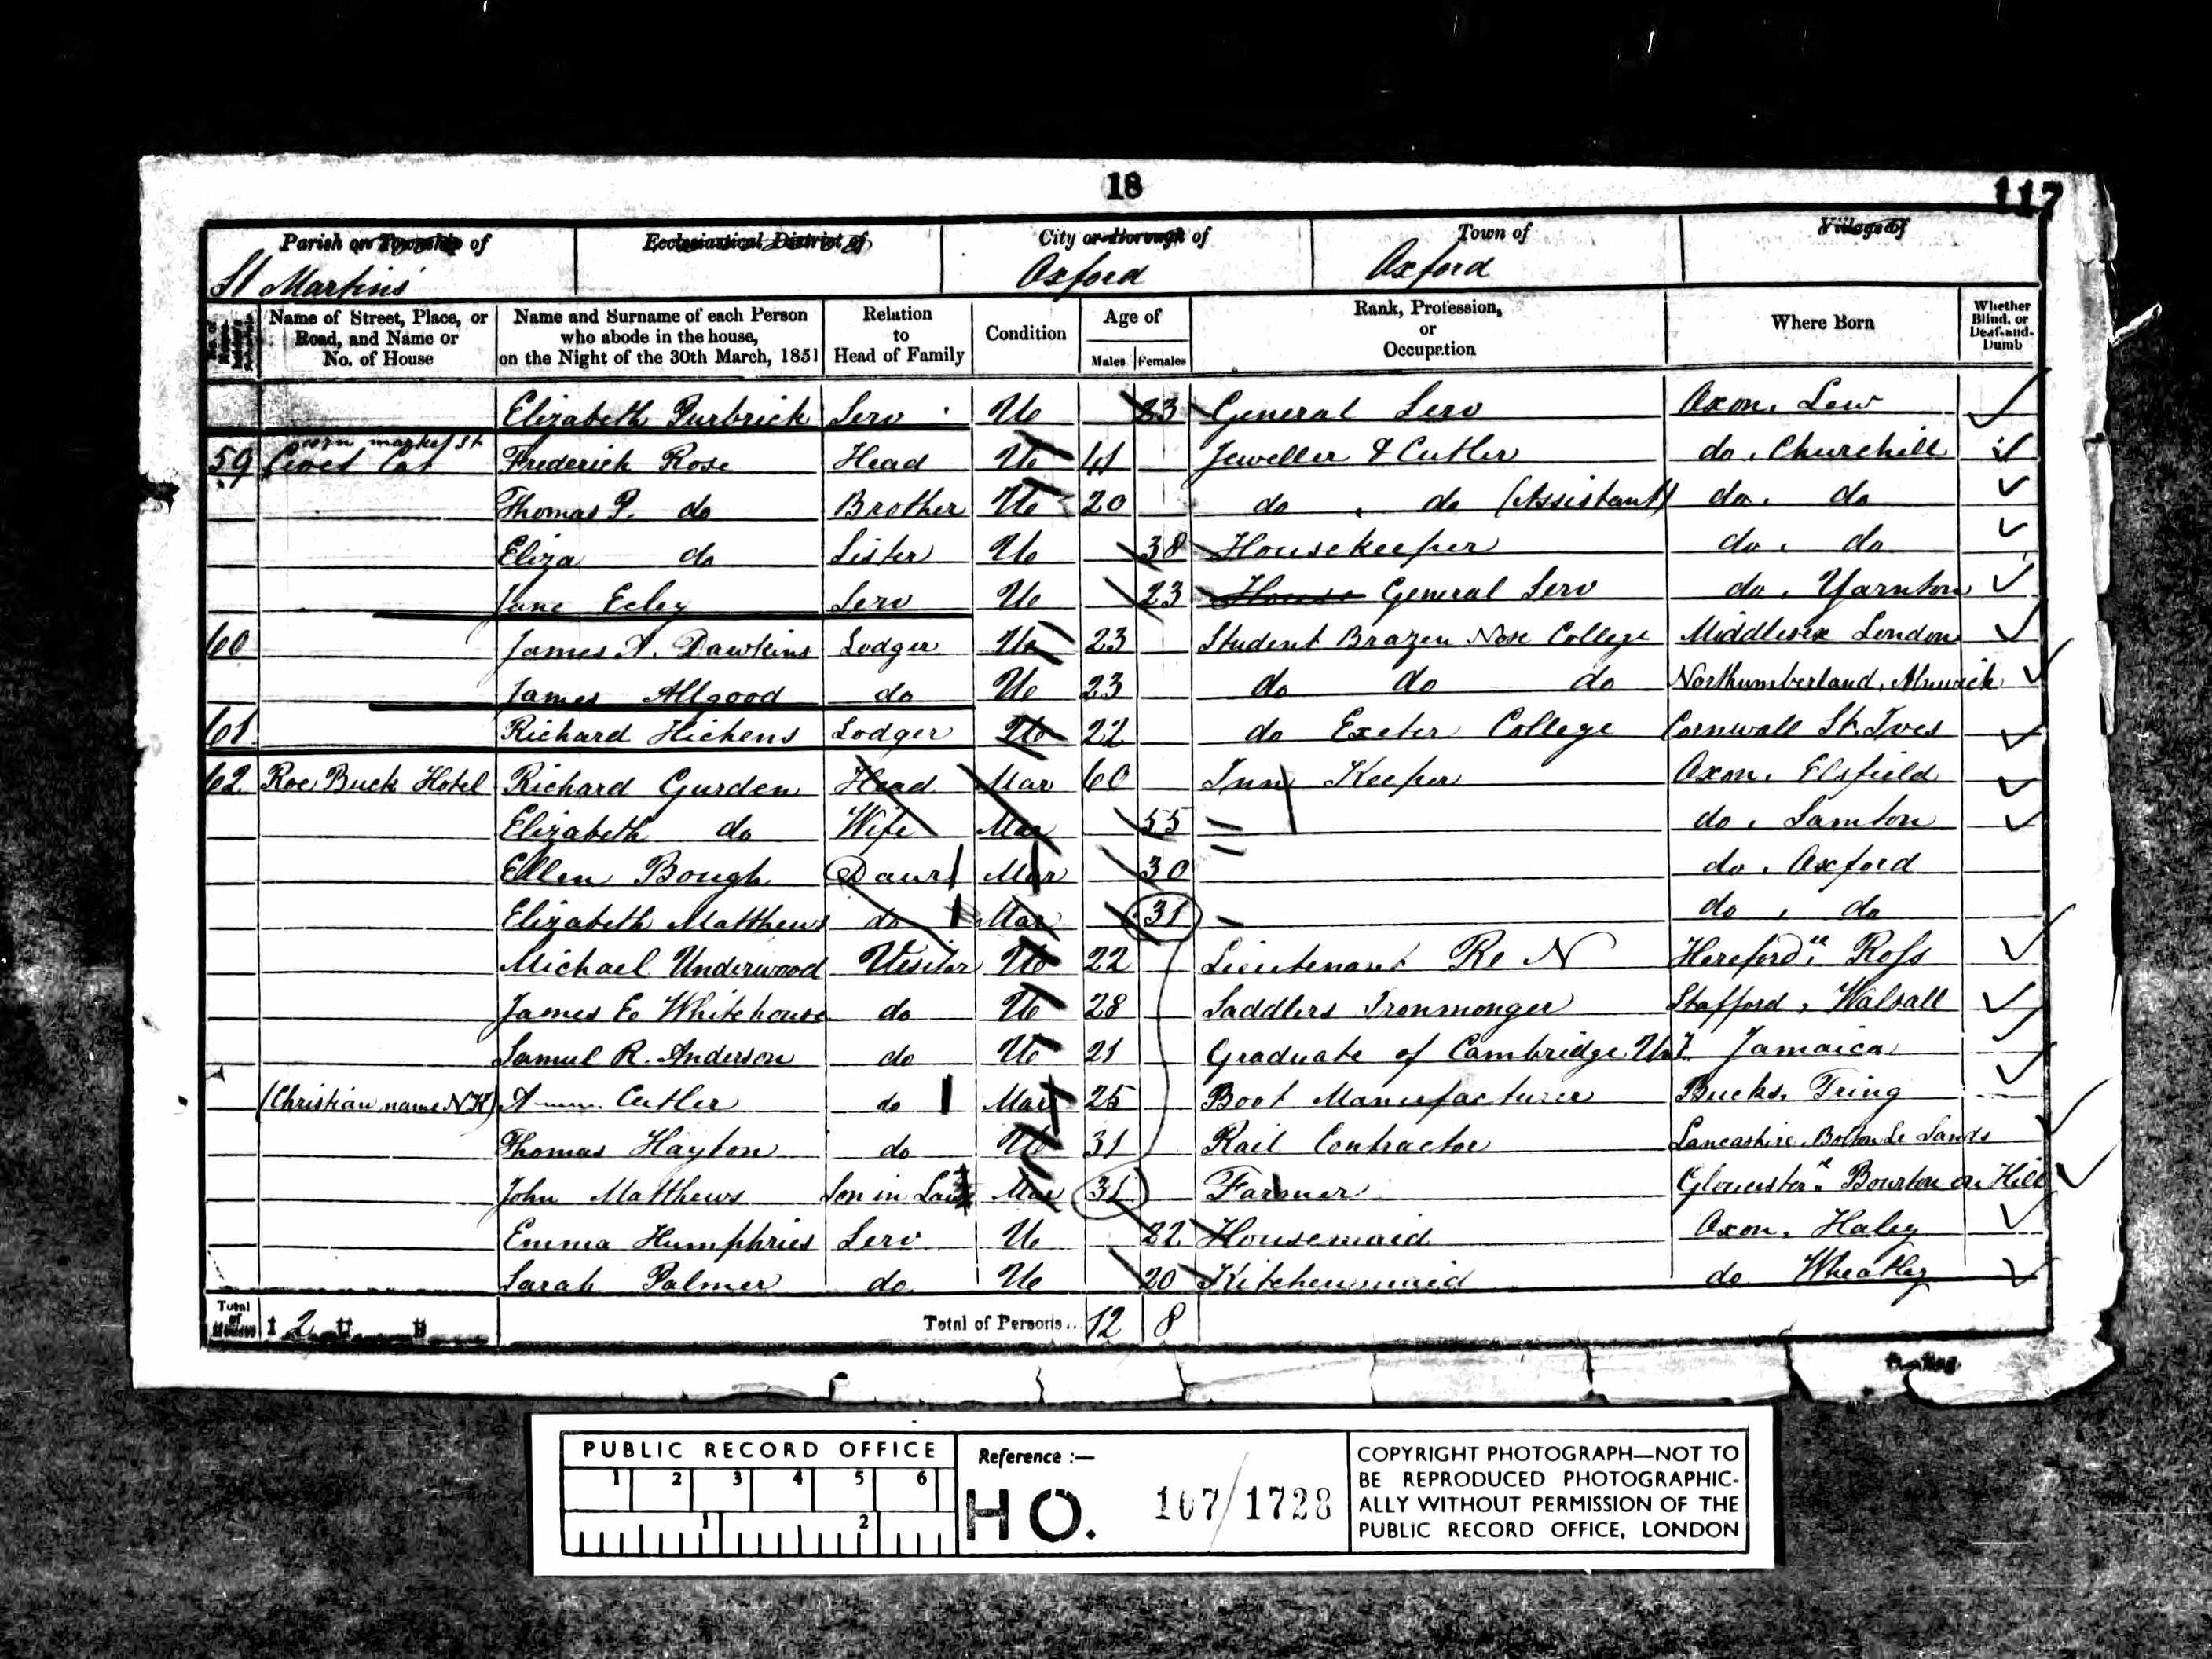 18
117
Parish or Township of Ecclesiastical District of City or Borough of Town of Village of
St Martins Oxford Oxford
Name of Street, Place, or Road, and Name or No. of House Name and Surname of each Person who abode in the house, on the Night of the 30th March, 1851 Relation to Head of Family Condition Age of Males Females Rank, Profession, or Occupation Where Born Whether Blind, or Deaf-and-Dumb
Elizabeth Purbrick Serv U 23 General Serv Oxon. Lew
corn market St
59 Civet Cat Frederick Rose Head U 41 Jeweller & Cutler do. Churchill
Thomas P. do Brother U 20 do do (Assistant) do. do
Eliza do Sister U 38 Housekeeper do. do
Jane Eeley Serv U 23 House General Serv do. Yarnton
60 James A. Dawkins Lodger U 23 Student Brazen Nose College Middlesex London
James Allgood do U 23 do do do Northumberland, Alnwick
61 Richard Hichens Lodger U 22 do Exeter College Cornwall St. Ives
62 Roe Buck Hotel Richard Gurden Head Mar 60 Inn Keeper Oxon. Elsfield
Elizabeth do Wife Mar 55 do.
Ellen Bough Daur Mar 30 do. Oxford
Elizabeth Matthews do Mar 31 do. do
Michael Underwood Visitor U 22 Lieutenant R N Hereford Ross
James E. Whitehouse do U 28 Saddlers Ironmonger Stafford, Walsall
Samuel R. Anderson do U 21 Graduate of Cambridge Jamaica
(Christian name N.K) A Cutler do Mar 25 Boot Manufacturer Bucks. Tring
Thomas Hayton do U 31 Rail Contractor Lancashire. Bolton Le Sands
John Matthews Son in Law Mar 31 Farmer Gloucester Bourton on Hill
Emma Humphries Serv U 22 Housemaid Oxon. Haley
Sarah Palmer do U 20 Kitchenmaid do Wheatley
Total of Houses I 2 U B Total of Persons.. 12 8
PUBLIC RECORD OFFICE
1 2 3 4 5 6
1 2
Reference :—
HO. 107/1728
COPYRIGHT PHOTOGRAPH—NOT TO
BE REPRODUCED PHOTOGRAPHIC-
ALLY WITHOUT PERMISSION OF THE
PUBLIC RECORD OFFICE, LONDON